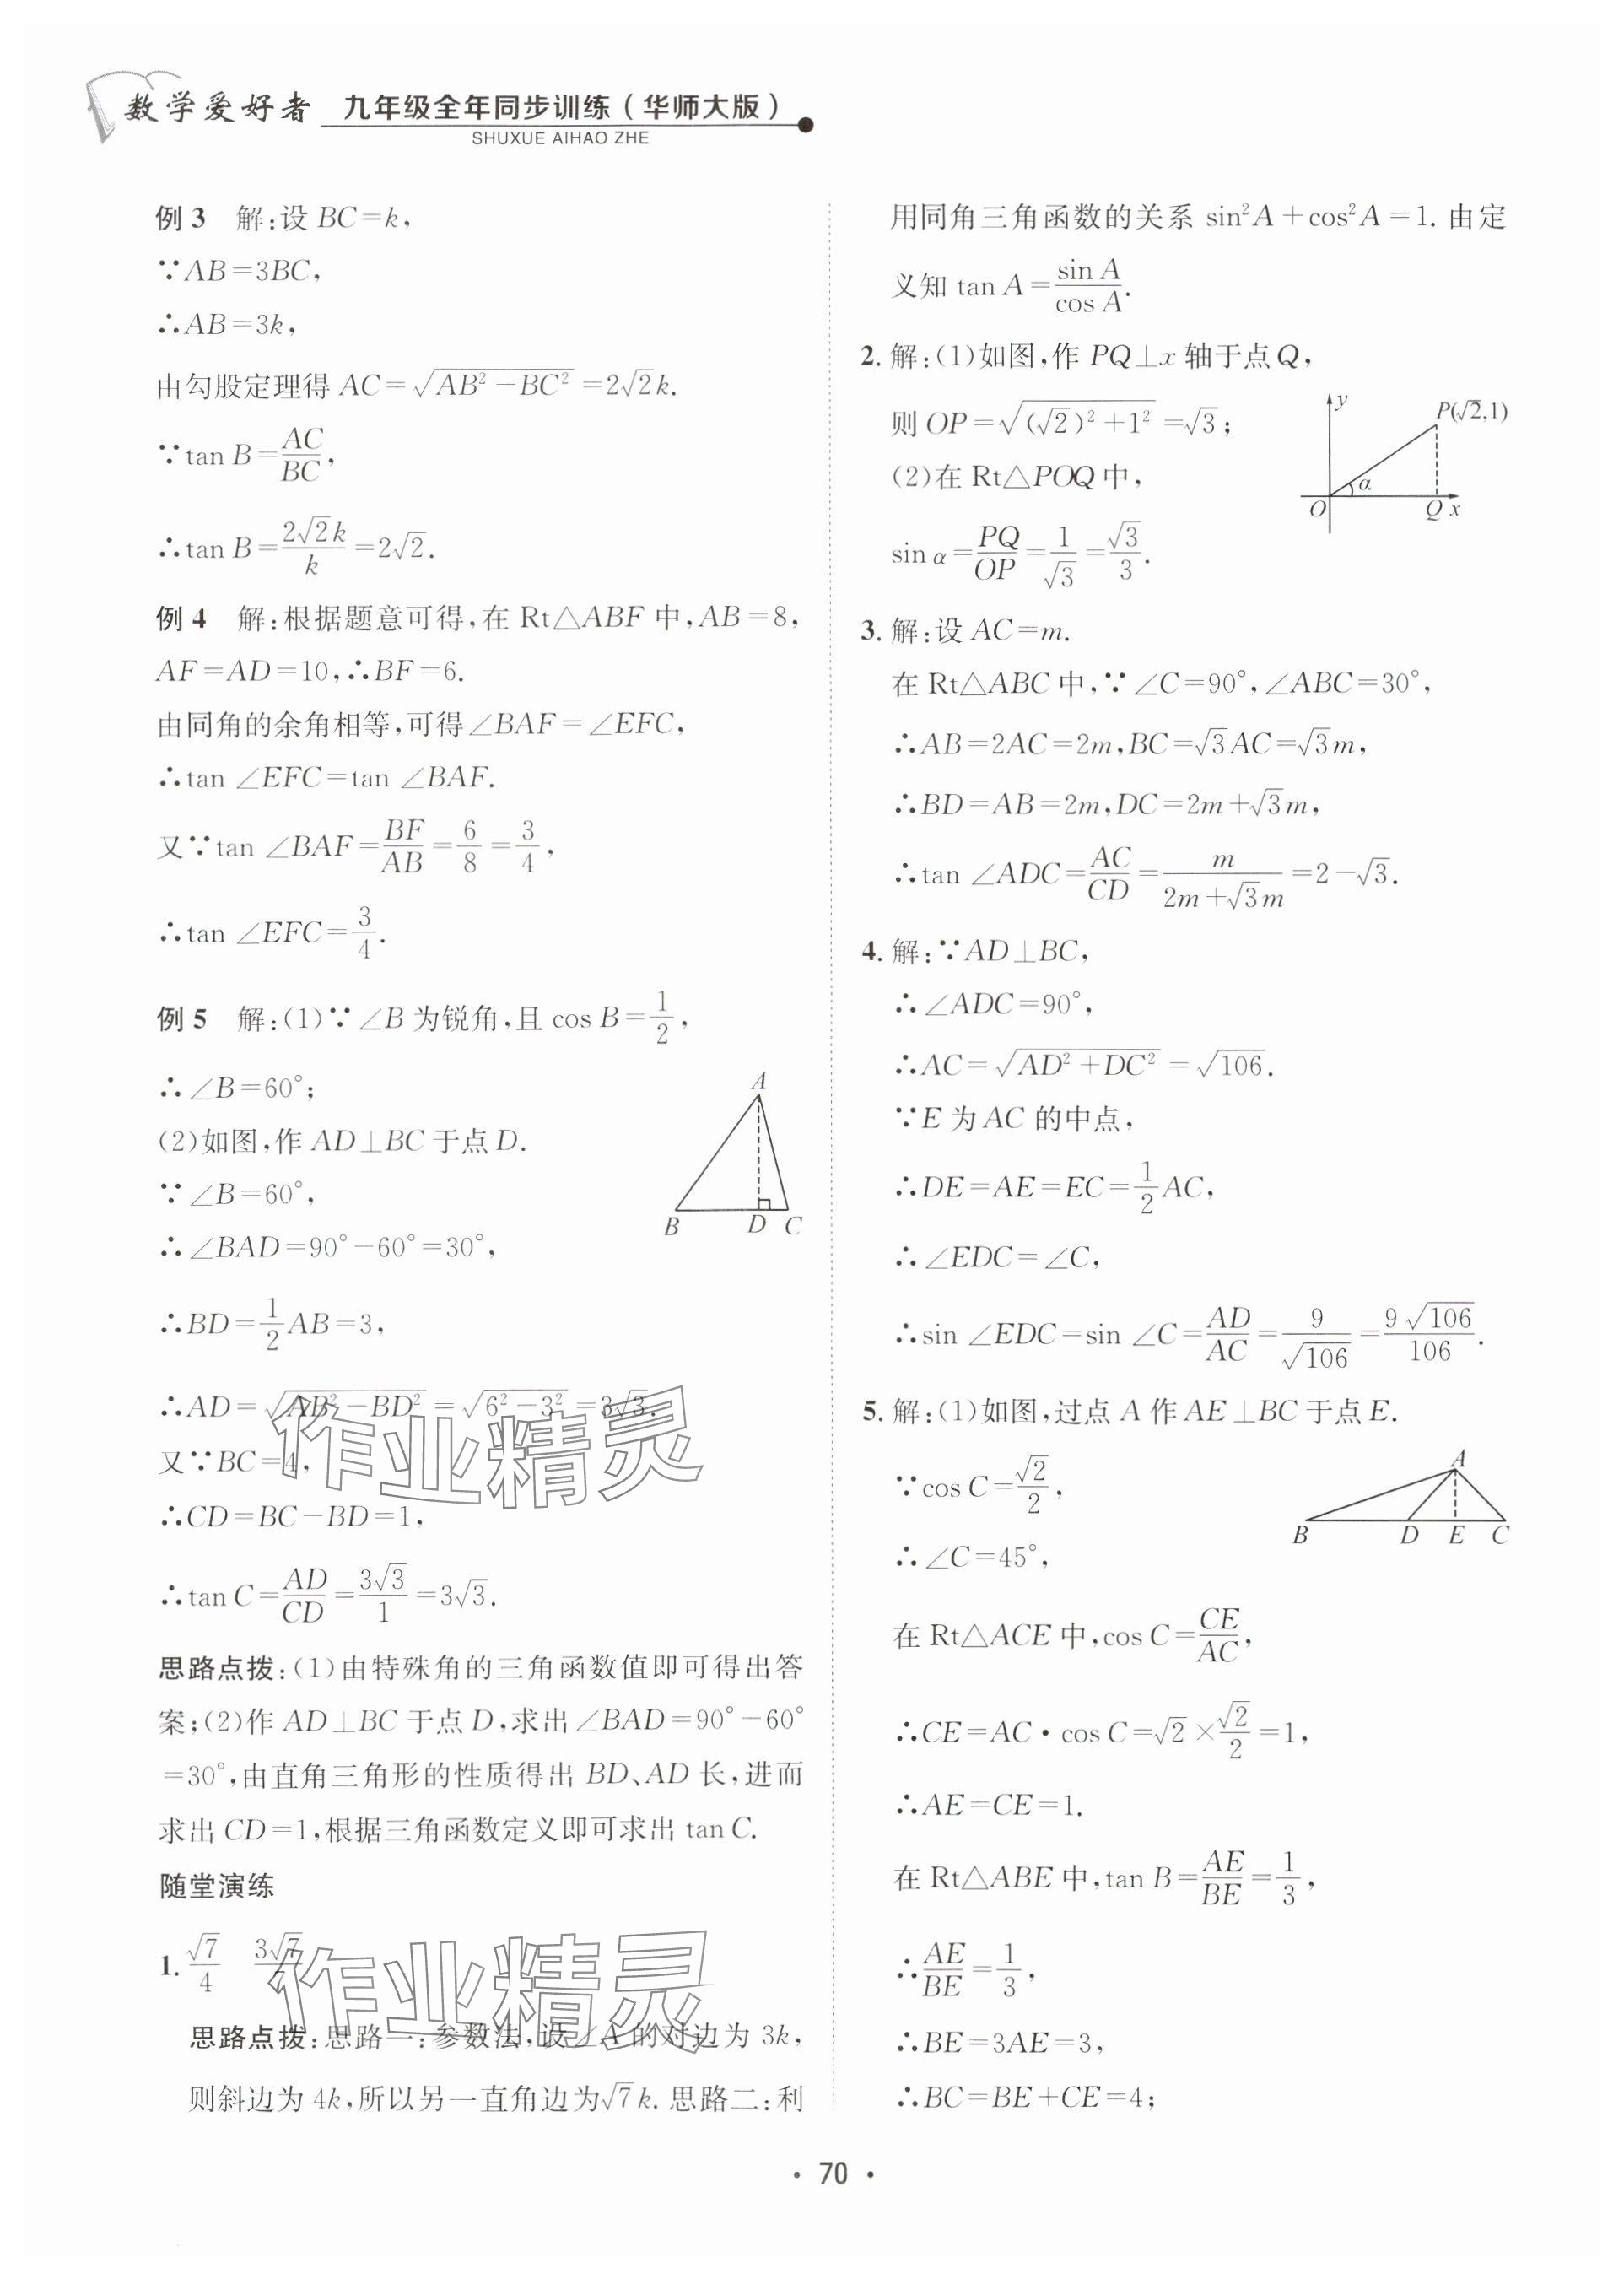 数学爱好者 九年级全年同步训练(华师大版)
SHUXUE AIHAO ZHE
例3 解:设BC=k,
∵AB=3BC,
∴AB=3k,
由勾股定理得AC=√(AB²-BC²)=2√2k.
∵tan B=AC/BC,
∴tan B=2√2k/k=2√2.
例4 解:根据题意可得,在Rt△ABF中,AB=8,
AF=AD=10,∴BF=6.
由同角的余角相等,可得∠BAF=∠EFC,
∴tan ∠EFC=tan ∠BAF.
又∵tan ∠BAF=BF/AB=6/8=3/4,
∴tan ∠EFC=3/4.
例5 解:(1)∵∠B为锐角,且cos B=1/2,
∴∠B=60°;
(2)如图,作AD⊥BC于点D.
∵∠B=60°,
∴∠BAD=90°-60°=30°,
A
B D C
∴BD=1/2AB=3,
∴AD=√(AB²-BD²)=√(6²-3²)=3√3.
又∵BC=4,
∴CD=BC-BD=1,
∴tan C=AD/CD=3√3/1=3√3.
思路点拨:(1)由特殊角的三角函数值即可得出答
案;(2)作AD⊥BC于点D,求出∠BAD=90°-60°
=30°,由直角三角形的性质得出BD、AD长,进而
求出CD=1,根据三角函数定义即可求出tan C.
随堂演练
1. √7/4 3√7/7
思路点拨:思路一:参数法,设∠A的对边为3k,
则斜边为4k,所以另一直角边为√7k.思路二:利
用同角三角函数的关系sin²A+cos²A=1.由定
义知tan A=sin A/cos A.
2. 解:(1)如图,作PQ⊥x轴于点Q,
则OP=√((√2)²+1²)=√3;
(2)在Rt△POQ中,
sin α=PQ/OP=1/√3=√3/3.
y
P(√2,1)
α
O Q x
3. 解:设AC=m.
在Rt△ABC中,∵∠C=90°,∠ABC=30°,
∴AB=2AC=2m,BC=√3AC=√3m,
∴BD=AB=2m,DC=2m+√3m,
∴tan ∠ADC=AC/CD=m/(2m+√3m)=2-√3.
4. 解:∵AD⊥BC,
∴∠ADC=90°,
∴AC=√(AD²+DC²)=√106.
∵E为AC的中点,
∴DE=AE=EC=1/2AC,
∴∠EDC=∠C,
∴sin ∠EDC=sin ∠C=AD/AC=9/√106=9√106/106.
5. 解:(1)如图,过点A作AE⊥BC于点E.
∵cos C=√2/2,
∴∠C=45°,
A
B D E C
在Rt△ACE中,cos C=CE/AC,
∴CE=AC·cos C=√2×√2/2=1,
∴AE=CE=1.
在Rt△ABE中,tan B=AE/BE=1/3,
∴AE/BE=1/3,
∴BE=3AE=3,
∴BC=BE+CE=4;
作业精灵
作业精灵
· 70 ·